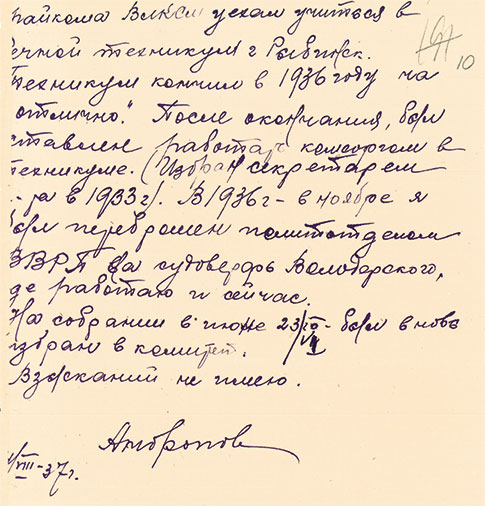 райкома ВЛКСМ уехал учиться в
речной техникум г Рыбинск.
Техникум кончил в 1936 году на
отлично." После окончания, был
ставлен работать комсоргом в
техникуме. (Избран секретарем
в 1933 г). В 1936 г - в ноябре я
был переброшен политотделом
ВВРП на судоверфь Володарского,
где работаю и сейчас.
На собрании в июне 23/ - был вновь
избран в комитет.
Взысканий не имею.
Андропов
/VIII-37 г.
10